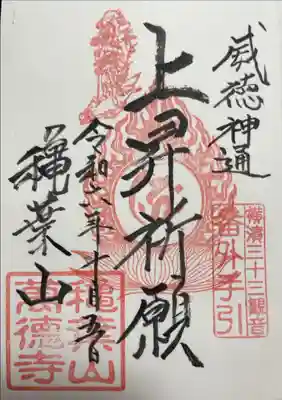 威徳神通
横濱三十三観音
番外手引
上昇祈願
令和六年十一月五日
龝葉山
龝葉山
萬徳寺